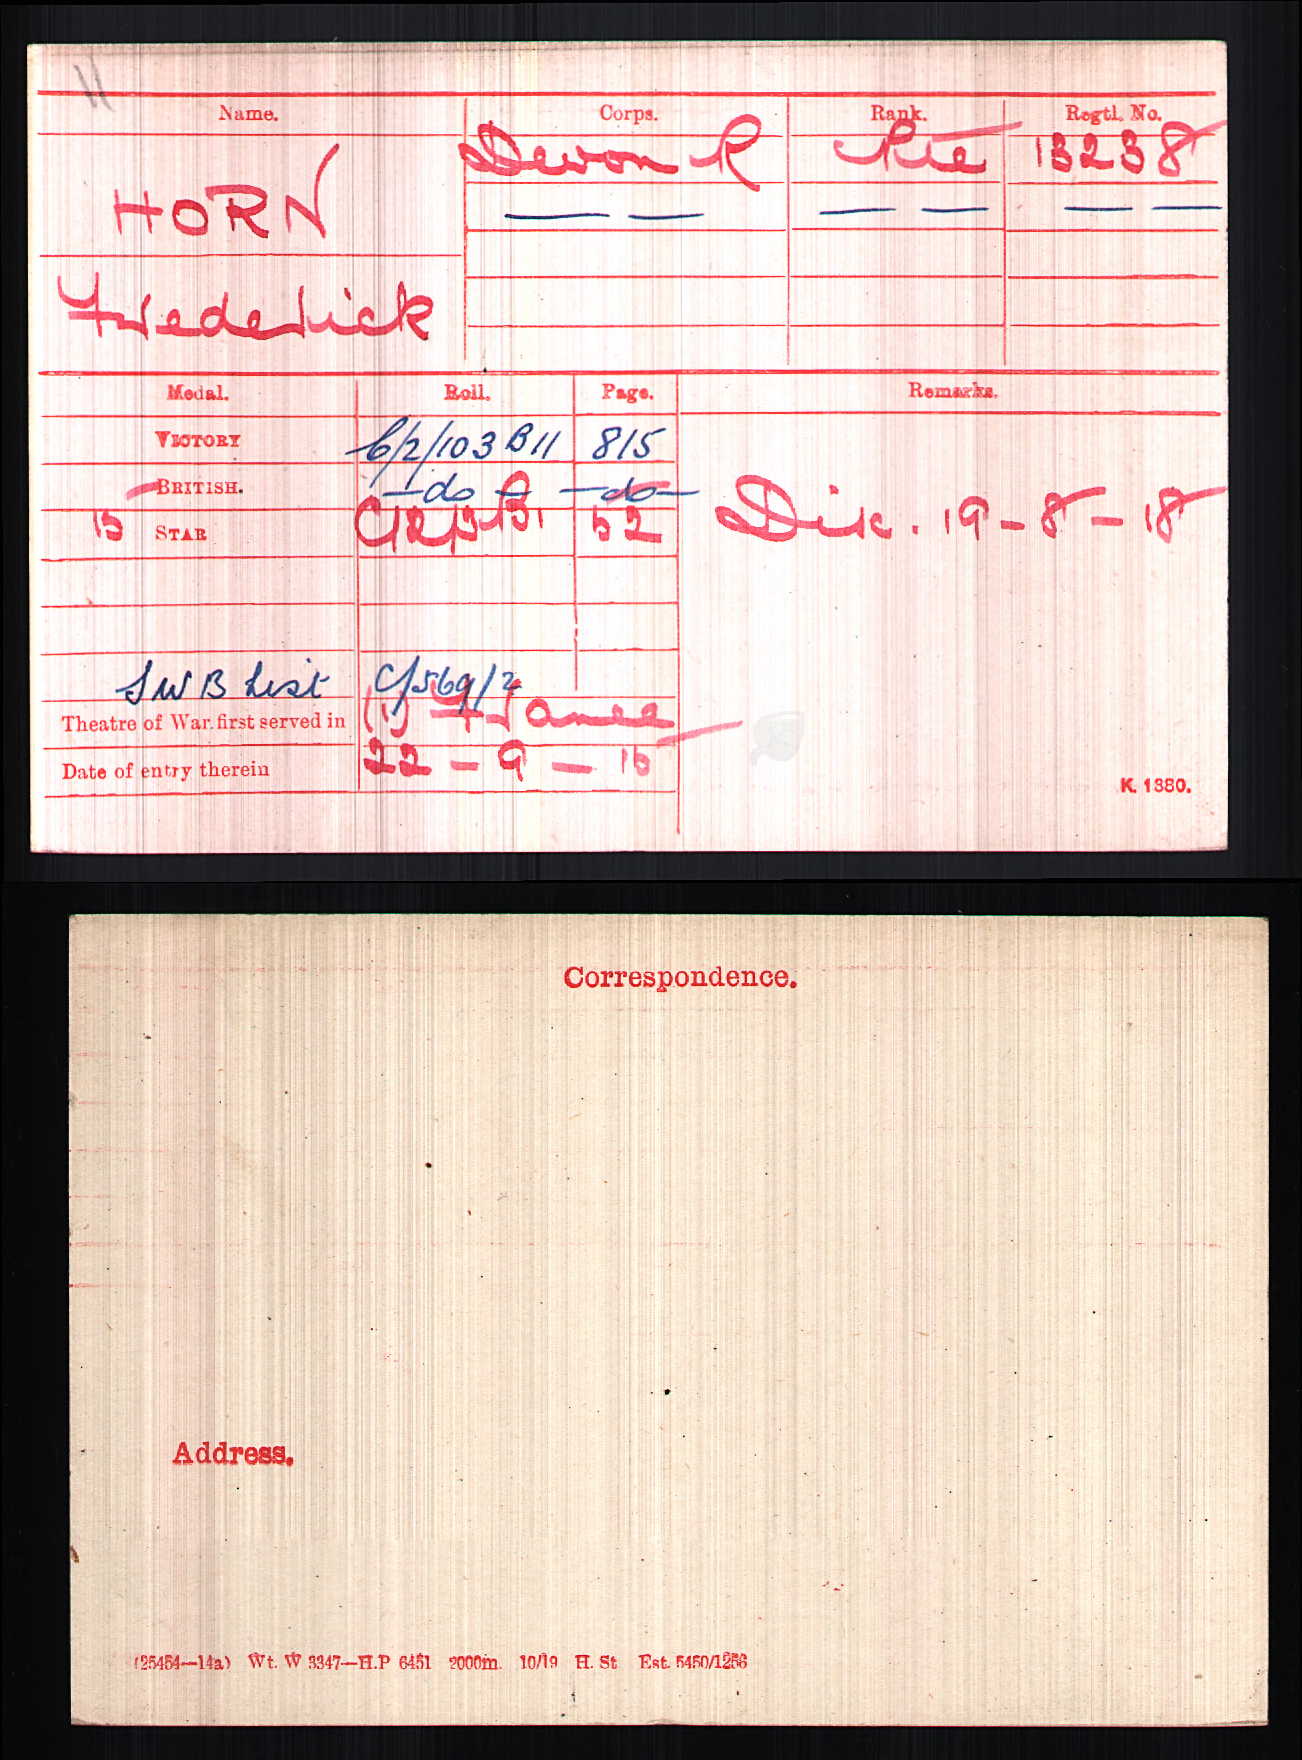 Name. Corps. Rank. Regtl. No.
HORN Devon R Pte 13238
— — — — — —
Frederick
Medal. Roll. Page. Remarks.
VICTORY 6/2/103 B11 815
BRITISH. —do— —do—
15 STAR 52 Dis. 19-8-18
SWB List C/569/2
Theatre of War first served in (1) France
Date of entry therein 22-9-15
K. 1380.
Correspondence.
Address.
(25454—14a) Wt. W 3347—H.P 6451 2000m. 10/19 H. St Est. 5450/1256